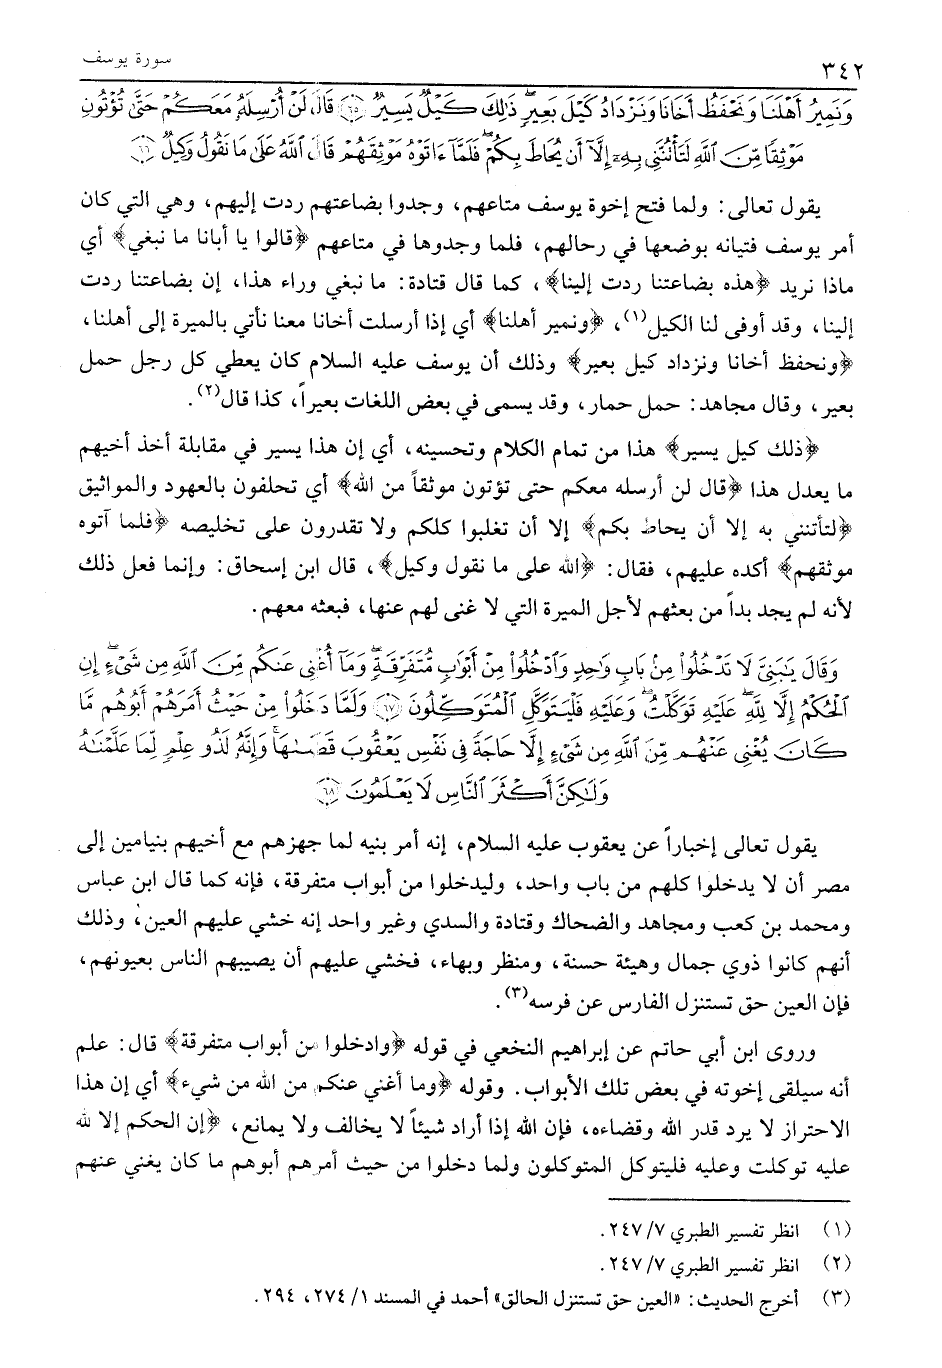 ٣٤٢
سورة يوسف
وَنَمِيرُ أَهْلَنَا وَنَحْفَظُ أَخَانَا وَنَزْدَادُ كَيْلَ بَعِيرٍ ذَٰلِكَ كَيْلٌ يَسِيرٌ ﴿٦٥﴾ قَالَ لَنْ أُرْسِلَهُ مَعَكُمْ حَتَّىٰ تُؤْتُونِ
مَوْثِقًا مِّنَ اللَّهِ لَتَأْتُنَّنِي بِهِ إِلَّا أَن يُحَاطَ بِكُمْ فَلَمَّا ءَاتَوْهُ مَوْثِقَهُمْ قَالَ اللَّهُ عَلَىٰ مَا نَقُولُ وَكِيلٌ ﴿٦٦﴾
يقول تعالى: ولما فتح إخوة يوسف متاعهم، وجدوا بضاعتهم ردت إليهم، وهي التي كان
أمر يوسف فتيانه بوضعها في رحالهم، فلما وجدوها في متاعهم ﴿قالوا يا أبانا ما نبغي﴾ أي
ماذا نريد ﴿هذه بضاعتنا ردت إلينا﴾، كما قال قتادة: ما نبغي وراء هذا، إن بضاعتنا ردت
إلينا، وقد أوفى لنا الكيل(١)، ﴿ونمير أهلنا﴾ أي إذا أرسلت أخانا معنا نأتي بالميرة إلى أهلنا،
﴿ونحفظ أخانا ونزداد كيل بعير﴾ وذلك أن يوسف عليه السلام كان يعطي كل رجل حمل
بعير، وقال مجاهد: حمل حمار، وقد يسمى في بعض اللغات بعيراً، كذا قال(٢).
﴿ذلك كيل يسير﴾ هذا من تمام الكلام وتحسينه، أي إن هذا يسير في مقابلة أخذ أخيهم
ما يعدل هذا ﴿قال لن أرسله معكم حتى تؤتون موثقاً من الله﴾ أي تحلفون بالعهود والمواثيق
﴿لتأتنني به إلا أن يحاط بكم﴾ إلا أن تغلبوا كلكم ولا تقدرون على تخليصه ﴿فلما آتوه
موثقهم﴾ أكده عليهم، فقال: ﴿الله على ما نقول وكيل﴾، قال ابن إسحاق: وإنما فعل ذلك
لأنه لم يجد بداً من بعثهم لأجل الميرة التي لا غنى لهم عنها، فبعثه معهم.
وَقَالَ يَٰبَنِيَّ لَا تَدْخُلُوا۟ مِنۢ بَابٍ وَٰحِدٍ وَٱدْخُلُوا۟ مِنْ أَبْوَٰبٍ مُّتَفَرِّقَةٍ وَمَآ أُغْنِي عَنكُم مِّنَ ٱللَّهِ مِن شَيْءٍ إِنِ
ٱلْحُكْمُ إِلَّا لِلَّهِ عَلَيْهِ تَوَكَّلْتُ وَعَلَيْهِ فَلْيَتَوَكَّلِ ٱلْمُتَوَكِّلُونَ ﴿٦٧﴾ وَلَمَّا دَخَلُوا۟ مِنْ حَيْثُ أَمَرَهُمْ أَبُوهُم مَّا
كَانَ يُغْنِي عَنْهُم مِّنَ ٱللَّهِ مِن شَيْءٍ إِلَّا حَاجَةً فِي نَفْسِ يَعْقُوبَ قَضَىٰهَا وَإِنَّهُ لَذُو عِلْمٍ لِّمَا عَلَّمْنَٰهُ
وَلَٰكِنَّ أَكْثَرَ ٱلنَّاسِ لَا يَعْلَمُونَ ﴿٦٨﴾
يقول تعالى إخباراً عن يعقوب عليه السلام، إنه أمر بنيه لما جهزهم مع أخيهم بنيامين إلى
مصر أن لا يدخلوا كلهم من باب واحد، وليدخلوا من أبواب متفرقة، فإنه كما قال ابن عباس
ومحمد بن كعب ومجاهد والضحاك وقتادة والسدي وغير واحد إنه خشي عليهم العين، وذلك
أنهم كانوا ذوي جمال وهيئة حسنة، ومنظر وبهاء، فخشي عليهم أن يصيبهم الناس بعيونهم،
فإن العين حق تستنزل الفارس عن فرسه(٣).
وروى ابن أبي حاتم عن إبراهيم النخعي في قوله ﴿وادخلوا من أبواب متفرقة﴾ قال: علم
أنه سيلقى إخوته في بعض تلك الأبواب. وقوله ﴿وما أغني عنكم من الله من شيء﴾ أي إن هذا
الاحتراز لا يرد قدر الله وقضاءه، فإن الله إذا أراد شيئاً لا يخالف ولا يمانع، ﴿إن الحكم إلا لله
عليه توكلت وعليه فليتوكل المتوكلون ولما دخلوا من حيث أمرهم أبوهم ما كان يغني عنهم
(١) انظر تفسير الطبري ٧/ ٢٤٧.
(٢) انظر تفسير الطبري ٧/ ٢٤٧.
(٣) أخرج الحديث: «العين حق تستنزل الحالق» أحمد في المسند ١/ ٢٧٤، ٢٩٤.